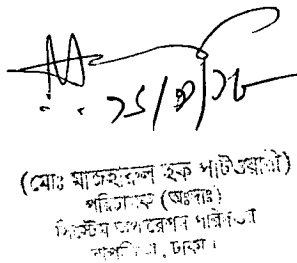 (মোঃ মাজহারুল হক পাটওয়ারী)
পরিচালক (অঃদাঃ)
সিস্টেম অপারেশন পরিদপ্তর
ঢাকা।